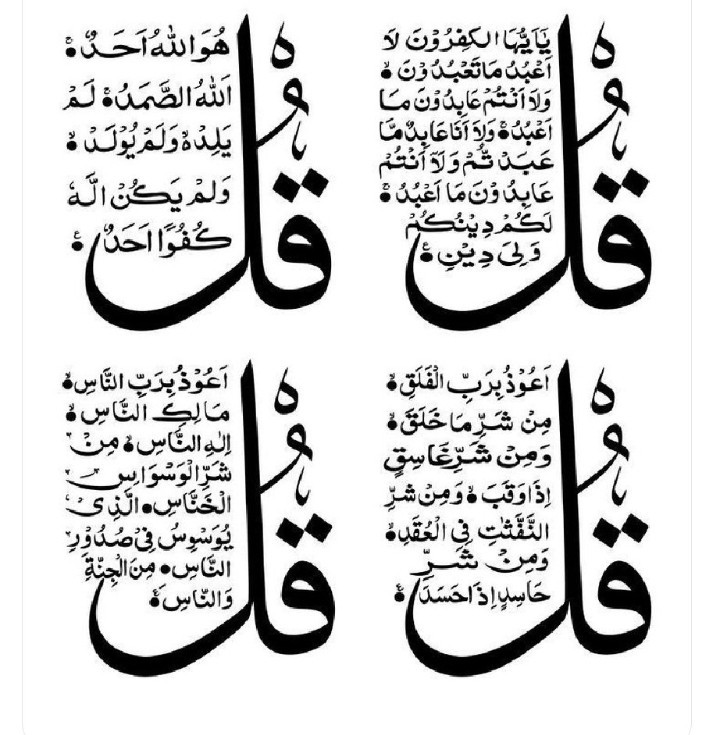 قُلْ
يٰۤاَيُّهَا الكٰفِرُوْنَ لَا
اَعْبُدُ مَا تَعْبُدُوْنَ ۙ
وَلَا اَنْتُمْ عَابِدُوْنَ مَا
اَعْبُدُ ۚ وَلَا اَنَا عَابِدٌ مَّا
عَبَدْ تُّمْ وَلَاۤ اَنْتُمْ
عَابِدُوْنَ مَا اَعْبُدُ ؕ
لَكُمْ دِيْنُكُمْ
وَلِيَ دِيْنِ ۠
قُلْ
هُوَ اللّٰهُ اَحَدٌ ۚ
اَللّٰهُ الصَّمَدُ ۚ لَمْ
يَلِدْ ۙ وَلَمْ يُوْلَدْ ۙ
وَلَمْ يَكُنْ لَّهٗ
كُفُوًا اَحَدٌ ۠
قُلْ
اَعُوْذُ بِرَبِّ الْفَلَقِ ۙ
مِنْ شَرِّ مَا خَلَقَ ۙ
وَمِنْ شَرِّ غَاسِقٍ
اِذَا وَقَبَ ۙ وَمِنْ شَرِّ
النَّفّٰثٰتِ فِي الْعُقَدِ ۙ
وَمِنْ شَرِّ
حَاسِدٍ اِذَا حَسَدَ ۠
قُلْ
اَعُوْذُ بِرَبِّ النَّاسِ ۙ
مَالِكِ النَّاسِ ۙ
اِلٰهِ النَّاسِ ۙ مِنْ
شَرِّ الْوَسْوَاسِ
الْخَنَّاسِ ۙ الَّذِيْ
يُوَسْوِسُ فِيْ صُدُوْرِ
النَّاسِ ۙ مِنَ الْجِنَّةِ
وَالنَّاسِ ۠